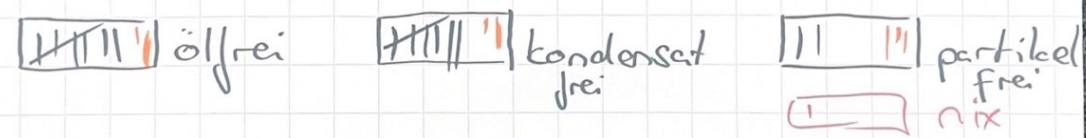 ölfrei
kondensat
frei
partikel
frei
nix